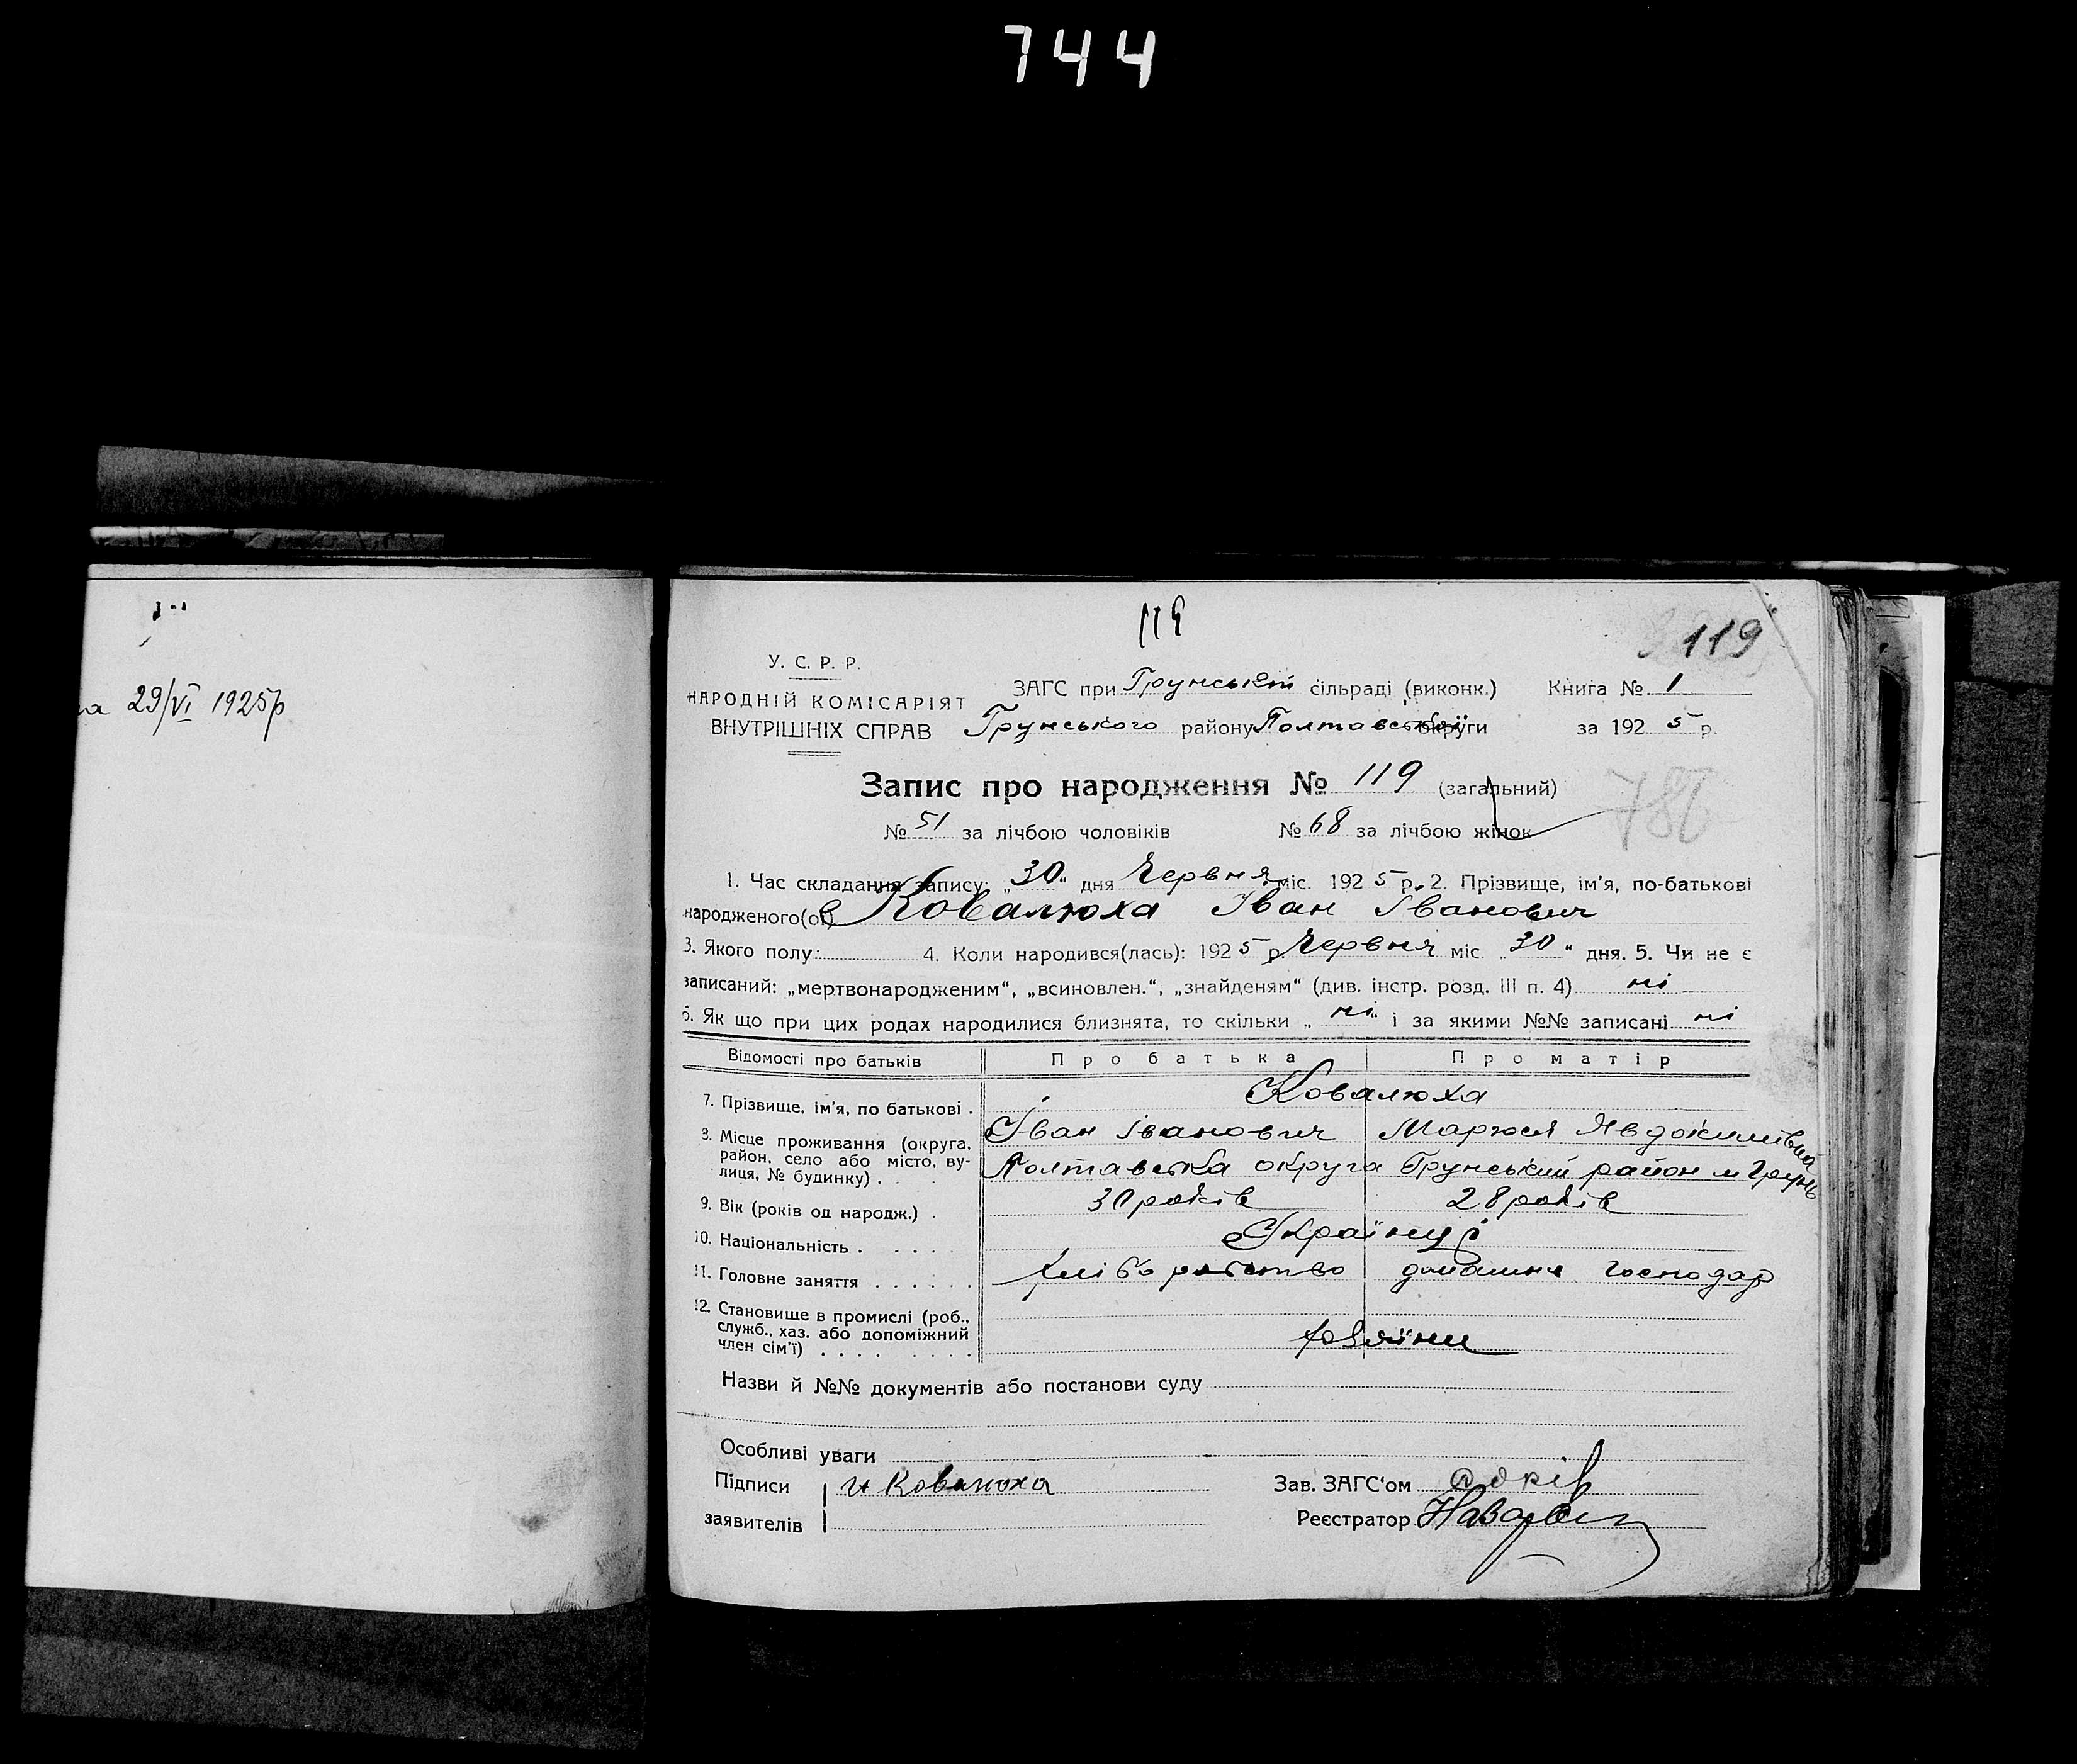 744
на 29/VI 1925р
119
119
У. С. Р. Р.
НАРОДНІЙ КОМІСАРІЯТ
ВНУТРІШНІХ СПРАВ
ЗАГС при Грунській сільраді (виконк.) Книга № 1
Грунського району Полтавської округи за 1925 р.
Запис про народження № 119 (загальний)
786
№ 51 за лічбою чоловіків № 68 за лічбою жінок
1. Час складання запису: „30“ дня Червня міс. 1925 р. 2. Прізвище, ім'я, по-батькові
народженого(ої) Ковалюха Іван Іванович
3. Якого полу: 4. Коли народився(лась): 1925 р. Червня міс. „30“ дня. 5. Чи не є
записаний: „мертвонародженим“, „всиновлен.“, „знайденям“ (див. інстр. розд. III п. 4) ні
6. Як що при цих родах народилися близнята, то скільки „ні“ і за якими №№ записані ні
Відомості про батьків Про батька Про матір
7. Прізвище, ім'я, по батькові . Ковалюха
Іван Іванович Маруся Явдокимівна
8. Місце проживання (округа,
район, село або місто, ву-
лиця, № будинку) . . . Полтавська округа Грунський район м Грунь
9. Вік (років од народж.) . 30 років 28 років
10. Національність . . . . . Українці
11. Головне заняття . . . . . . хліборобство домашнє господар
12. Становище в промислі (роб.,
служб., хаз. або допоміжний
член сім'ї) . . . . . . . . хазяїни
Назви й №№ документів або постанови суду
Особливі уваги
Підписи И Ковалюха
заявителів
Зав. ЗАГС'ом
Реєстратор